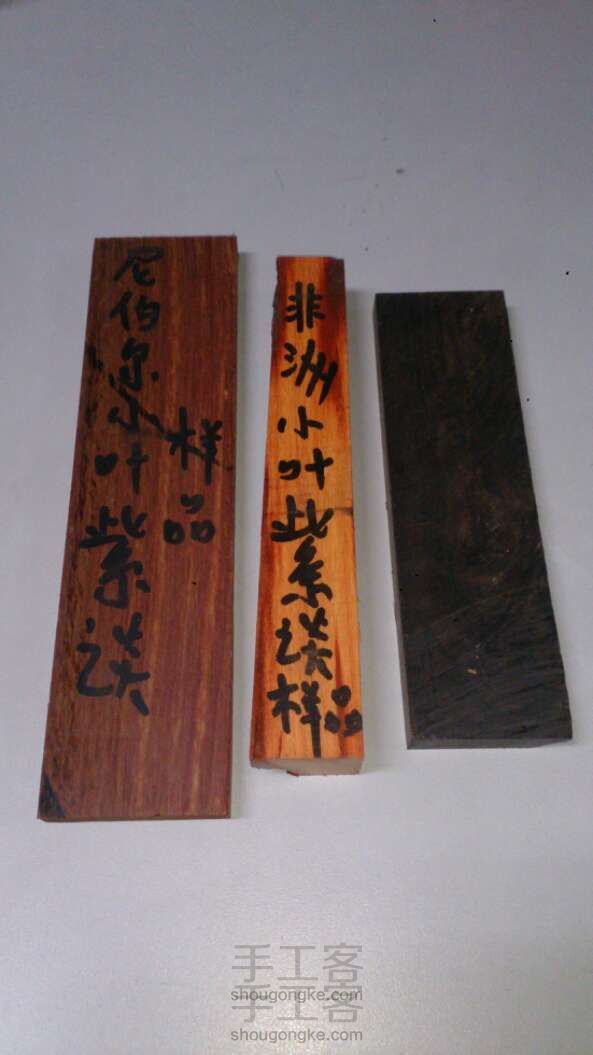 尼伯尔小叶紫谈
样品
非洲小叶紫谈样品
手工客
shougongke.com
手工客
shougongke.com